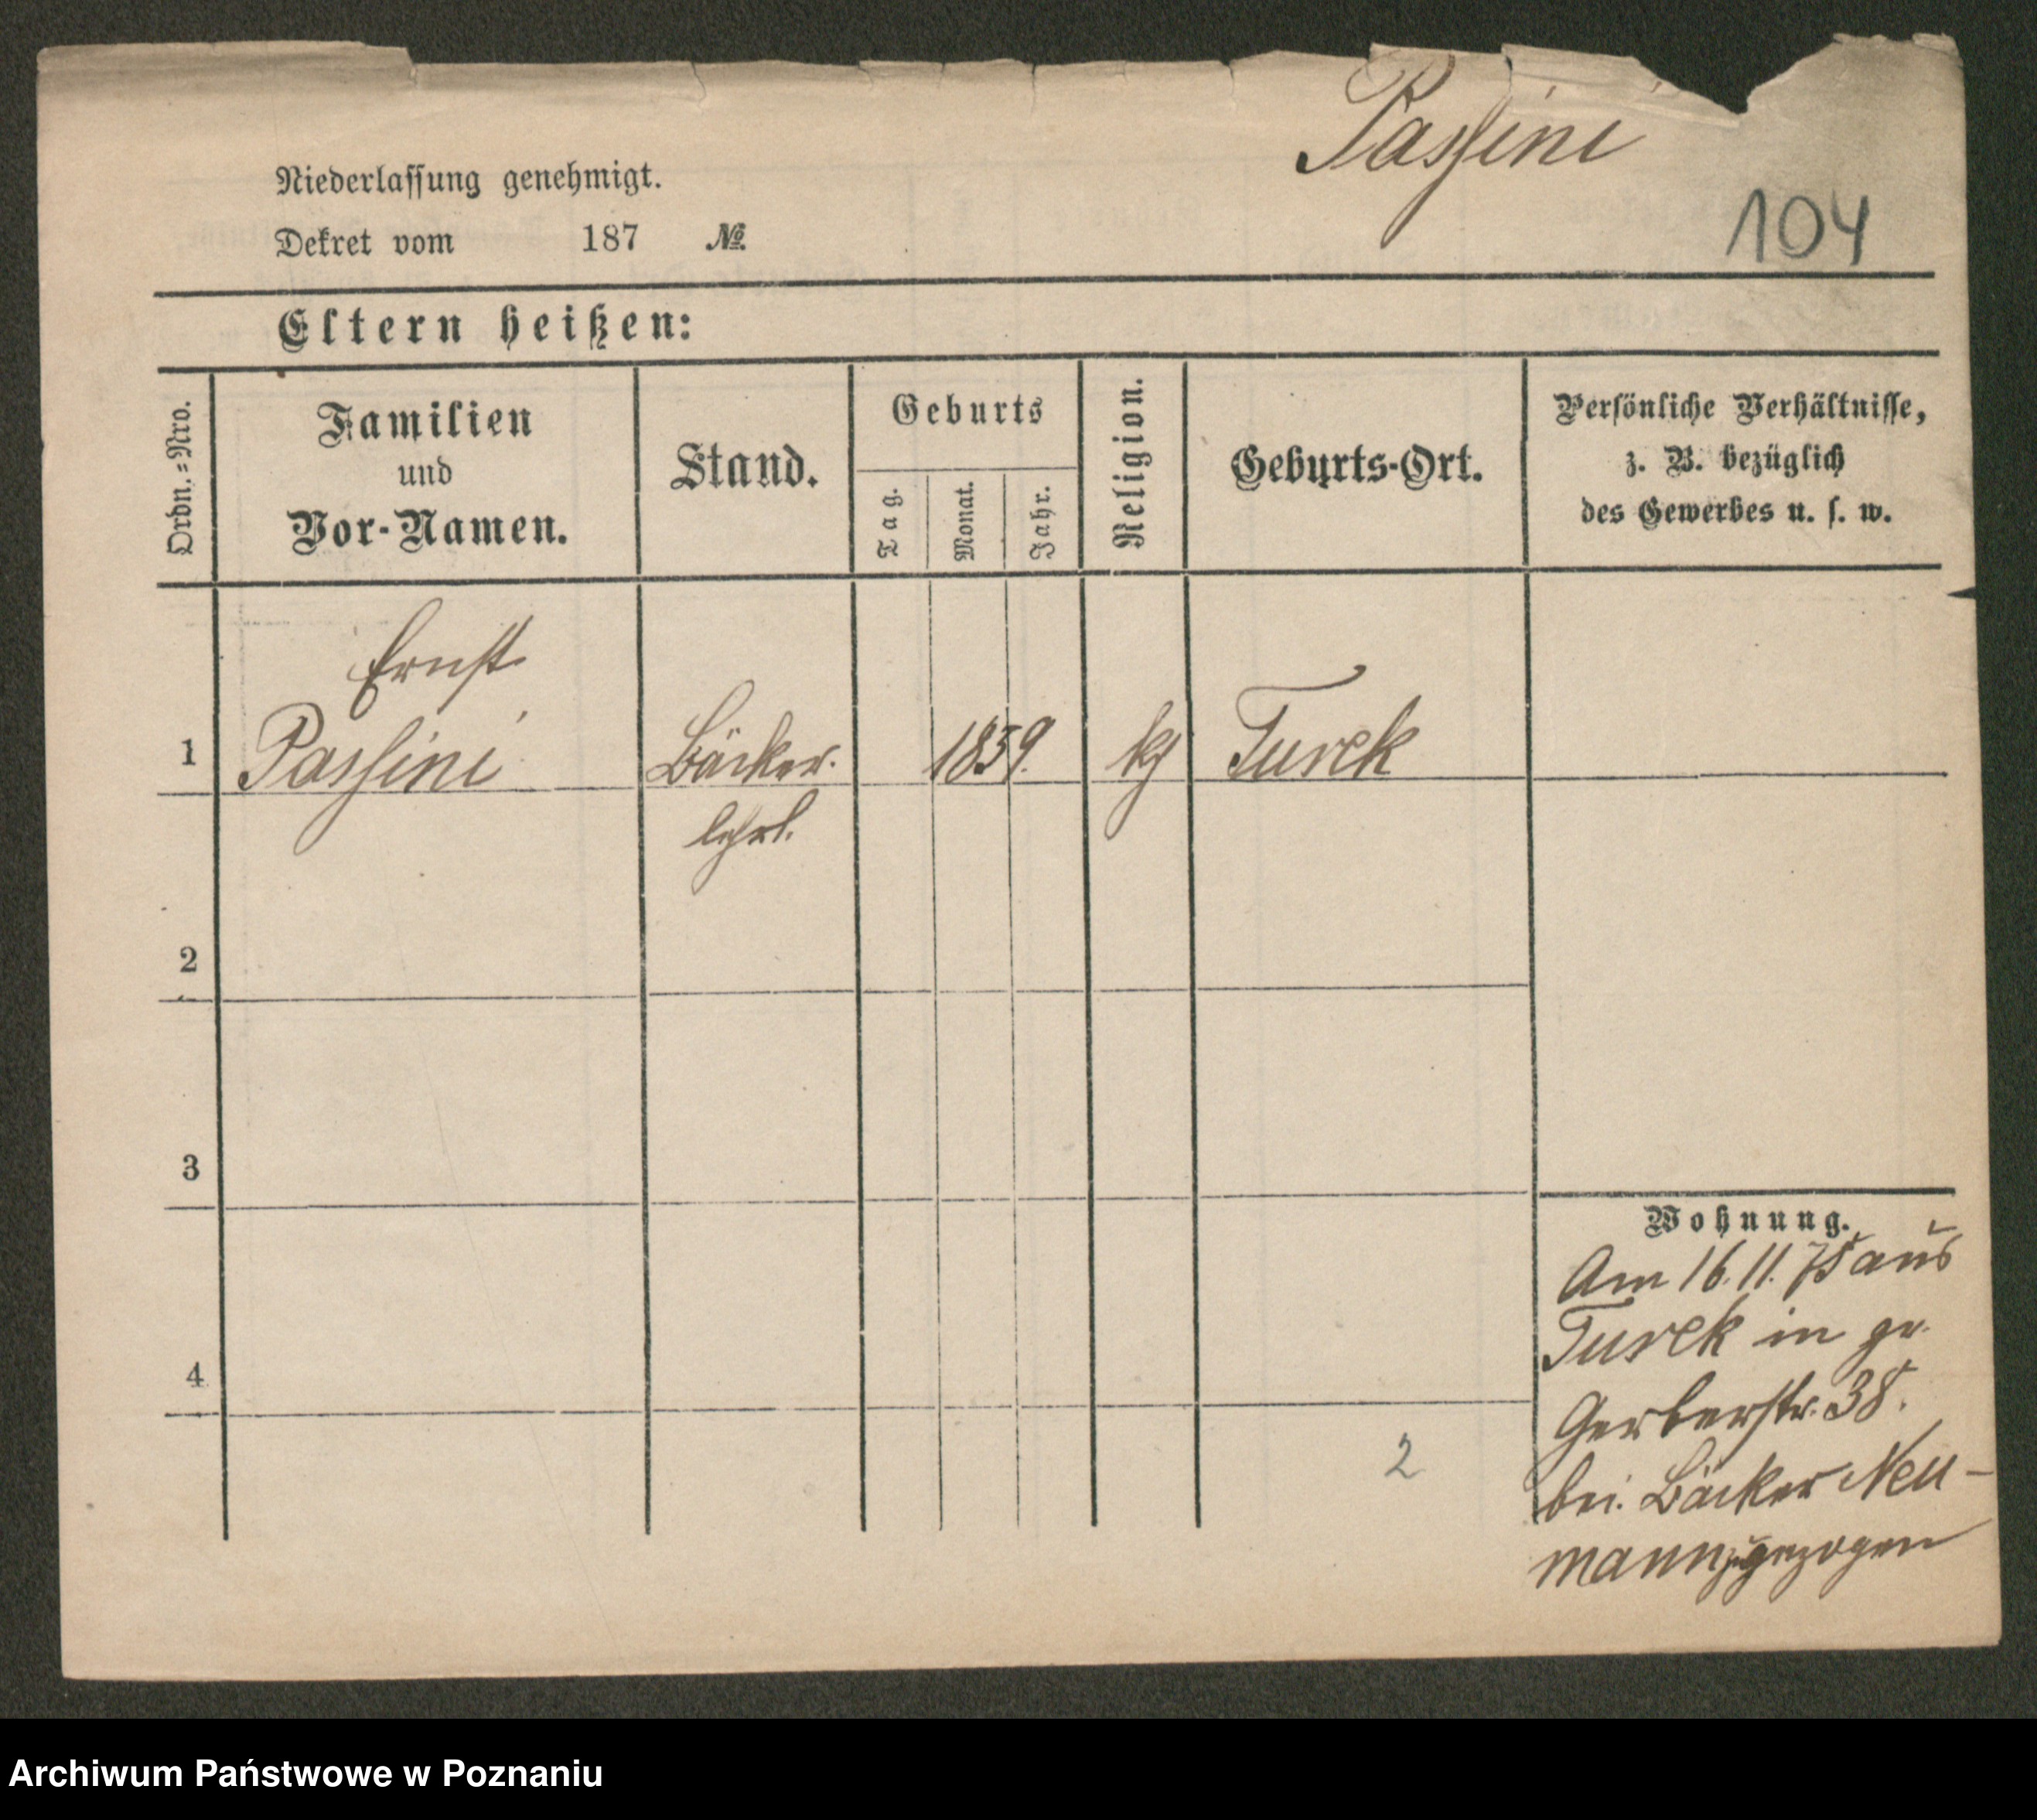 Passini
104
Niederlassung genehmigt.
Dekret vom 187 №
Eltern heißen:
Ordn.=Nro.
Familien
und
Vor-Namen.
Stand.
Geburts
Tag.
Monat.
Jahr.
Religion.
Geburts-Ort.
Persönliche Verhältnisse,
z. B. bezüglich
des Gewerbes u. s. w.
Ernst
1 Passini Bäcker. 1859. Turek
lehrl.
2
3
4
Wohnung.
Am 16. 11. 75 aus
Turek in gr.
Gerberstr. 38.
bei Bäcker Neu-
mann zugezogen
2
Archiwum Państwowe w Poznaniu